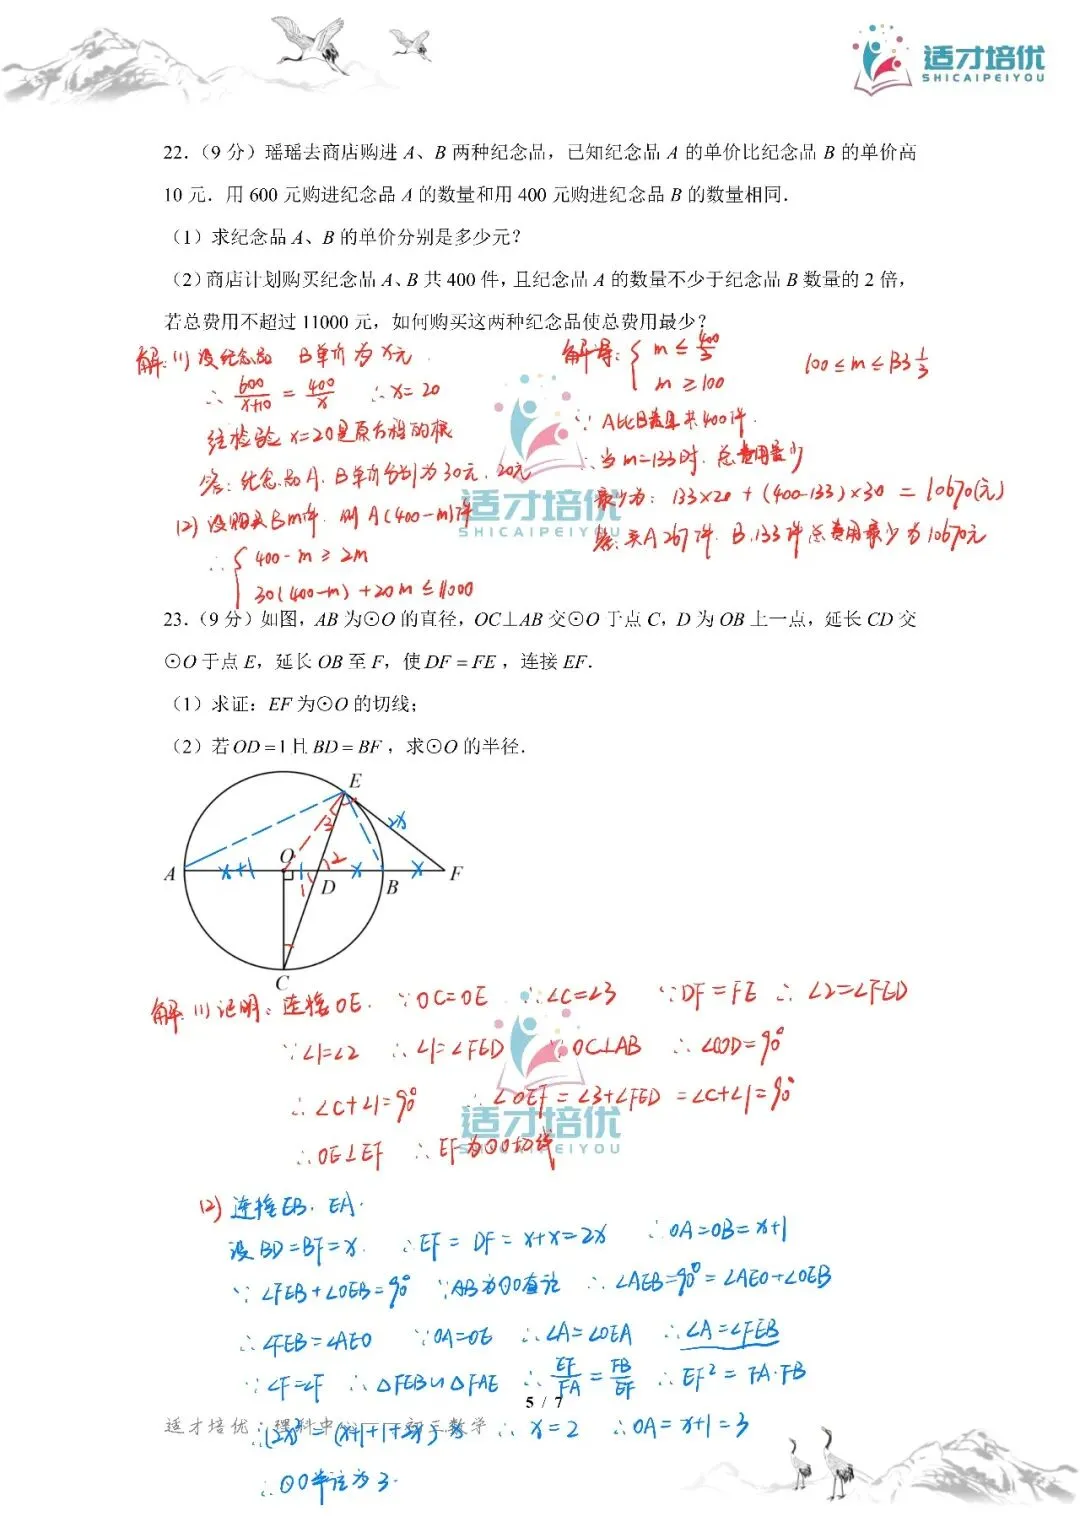 适才培优
SHICAIPEIYOU
22.（9 分）瑶瑶去商店购进 A、B 两种纪念品，已知纪念品 A 的单价比纪念品 B 的单价高
10 元．用 600 元购进纪念品 A 的数量和用 400 元购进纪念品 B 的数量相同．
（1）求纪念品 A、B 的单价分别是多少元？
（2）商店计划购买纪念品 A、B 共 400 件，且纪念品 A 的数量不少于纪念品 B 数量的 2 倍，
若总费用不超过 11000 元，如何购买这两种纪念品使总费用最少？
解：(1) 设纪念品 B单价为x元．
∴ 600/(x+10) = 400/x ∴ x=20
经检验 x=20是原方程的根
答：纪念品A、B单价分别为30元、20元
(2) 设购买B m件．则 A (400-m)件
∴ { 400-m ≥ 2m
30(400-m)+20m ≤ 11000
解得：{ m ≤ 400/3
m ≥ 100
100 ≤ m ≤ 133 1/3
共400件．
∴ 当m=133时．总费用最少
最少为：133×20+(400-133)×30 = 10670(元)
答：买A 267件．B 133件 总费用最少为10670元
适才培优
SHICAIPEIYOU
23.（9 分）如图，AB 为⊙O 的直径，OC⊥AB 交⊙O 于点 C，D 为 OB 上一点，延长 CD 交
⊙O 于点 E，延长 OB 至 F，使 DF = FE，连接 EF．
（1）求证：EF 为⊙O 的切线；
（2）若 OD = 1 且 BD = BF，求⊙O 的半径．
E
3
2x
A
x+1
O
1
2
x
x
F
1
D
B
C
解：(1) 证明：连接OE． ∵OC=OE ∴∠C=∠3 ∵DF=FE ∴∠2=∠FED
∵∠1=∠2 ∴∠1=∠FED ∵OC⊥AB ∴∠COD=90°
∴∠C+∠1=90° ∴∠OEF=∠3+∠FED=∠C+∠1=90°
∴OE⊥EF ∴EF为⊙O切线
适才培优
SHICAIPEIYOU
(2) 连接EB．EA．
设BD=BF=x． ∴EF=DF=x+x=2x ∴OA=OB=x+1
∵∠FEB+∠OEB=90° ∵AB为⊙O直径 ∴∠AEB=90°=∠AEO+∠OEB
∴∠FEB=∠AEO ∵OA=OE ∴∠A=∠OEA ∴∠A=∠FEB
∵∠F=∠F ∴△FEB∽△FAE ∴EF/FA=FB/EF ∴EF²=FA·FB
5 / 7
适才培优：理科中心——初三数学
∴(2x)²=(x+1+1+2x)·x ∴x=2 ∴OA=x+1=3
∴⊙O半径为3．